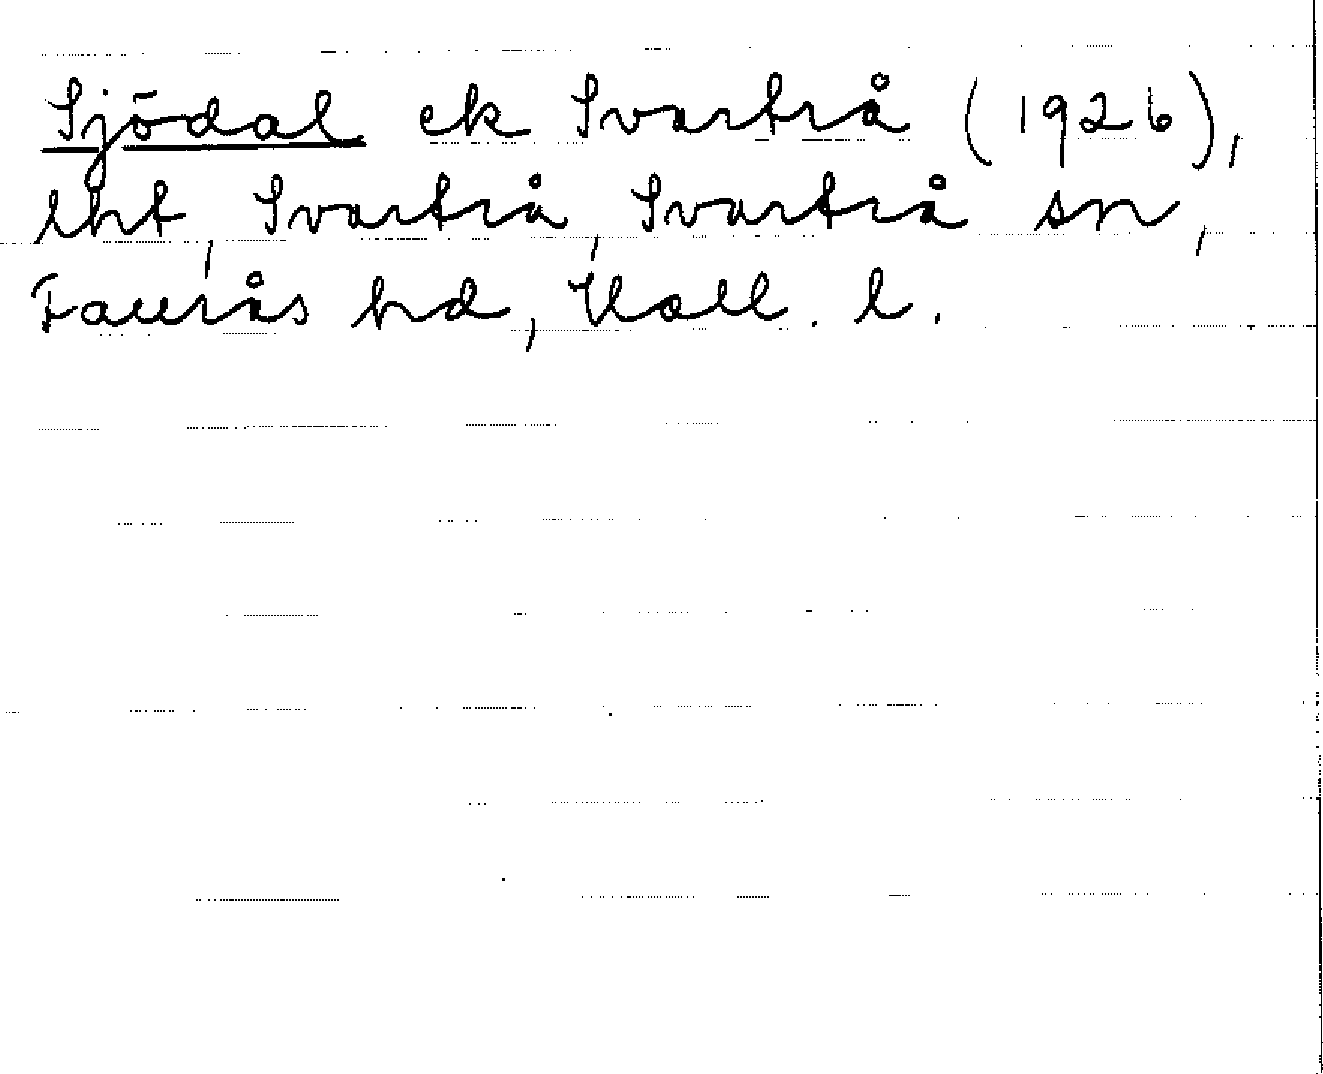 Sjödal ek Svartrå (1926),
lht, Svartrå, Svartrå sn,
Faurås hd, Hall. l.